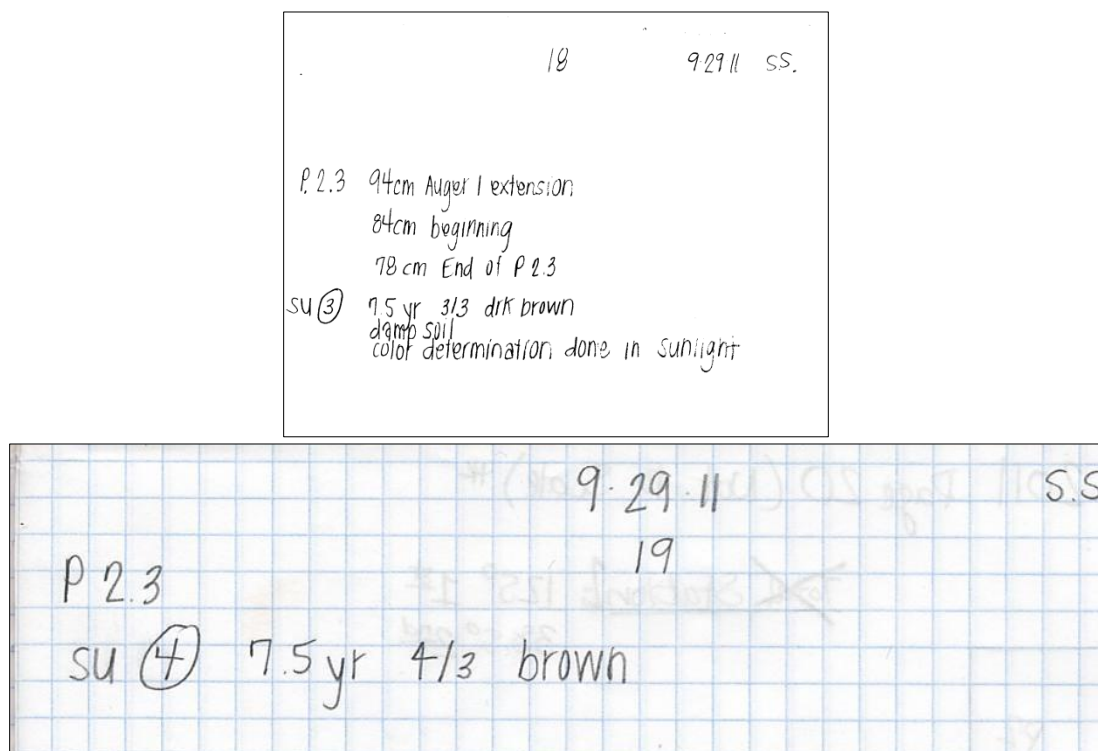 18 9·29 11 S.S.
P. 2.3 94cm Auger 1 extension
84cm beginning
78 cm End of P 2.3
SU ③ 7.5 yr 3/3 drk brown
damp soil
color determination done in sunlight
9·29·11 S.S
19
P 2.3
SU ④ 7.5 yr 4/3 brown